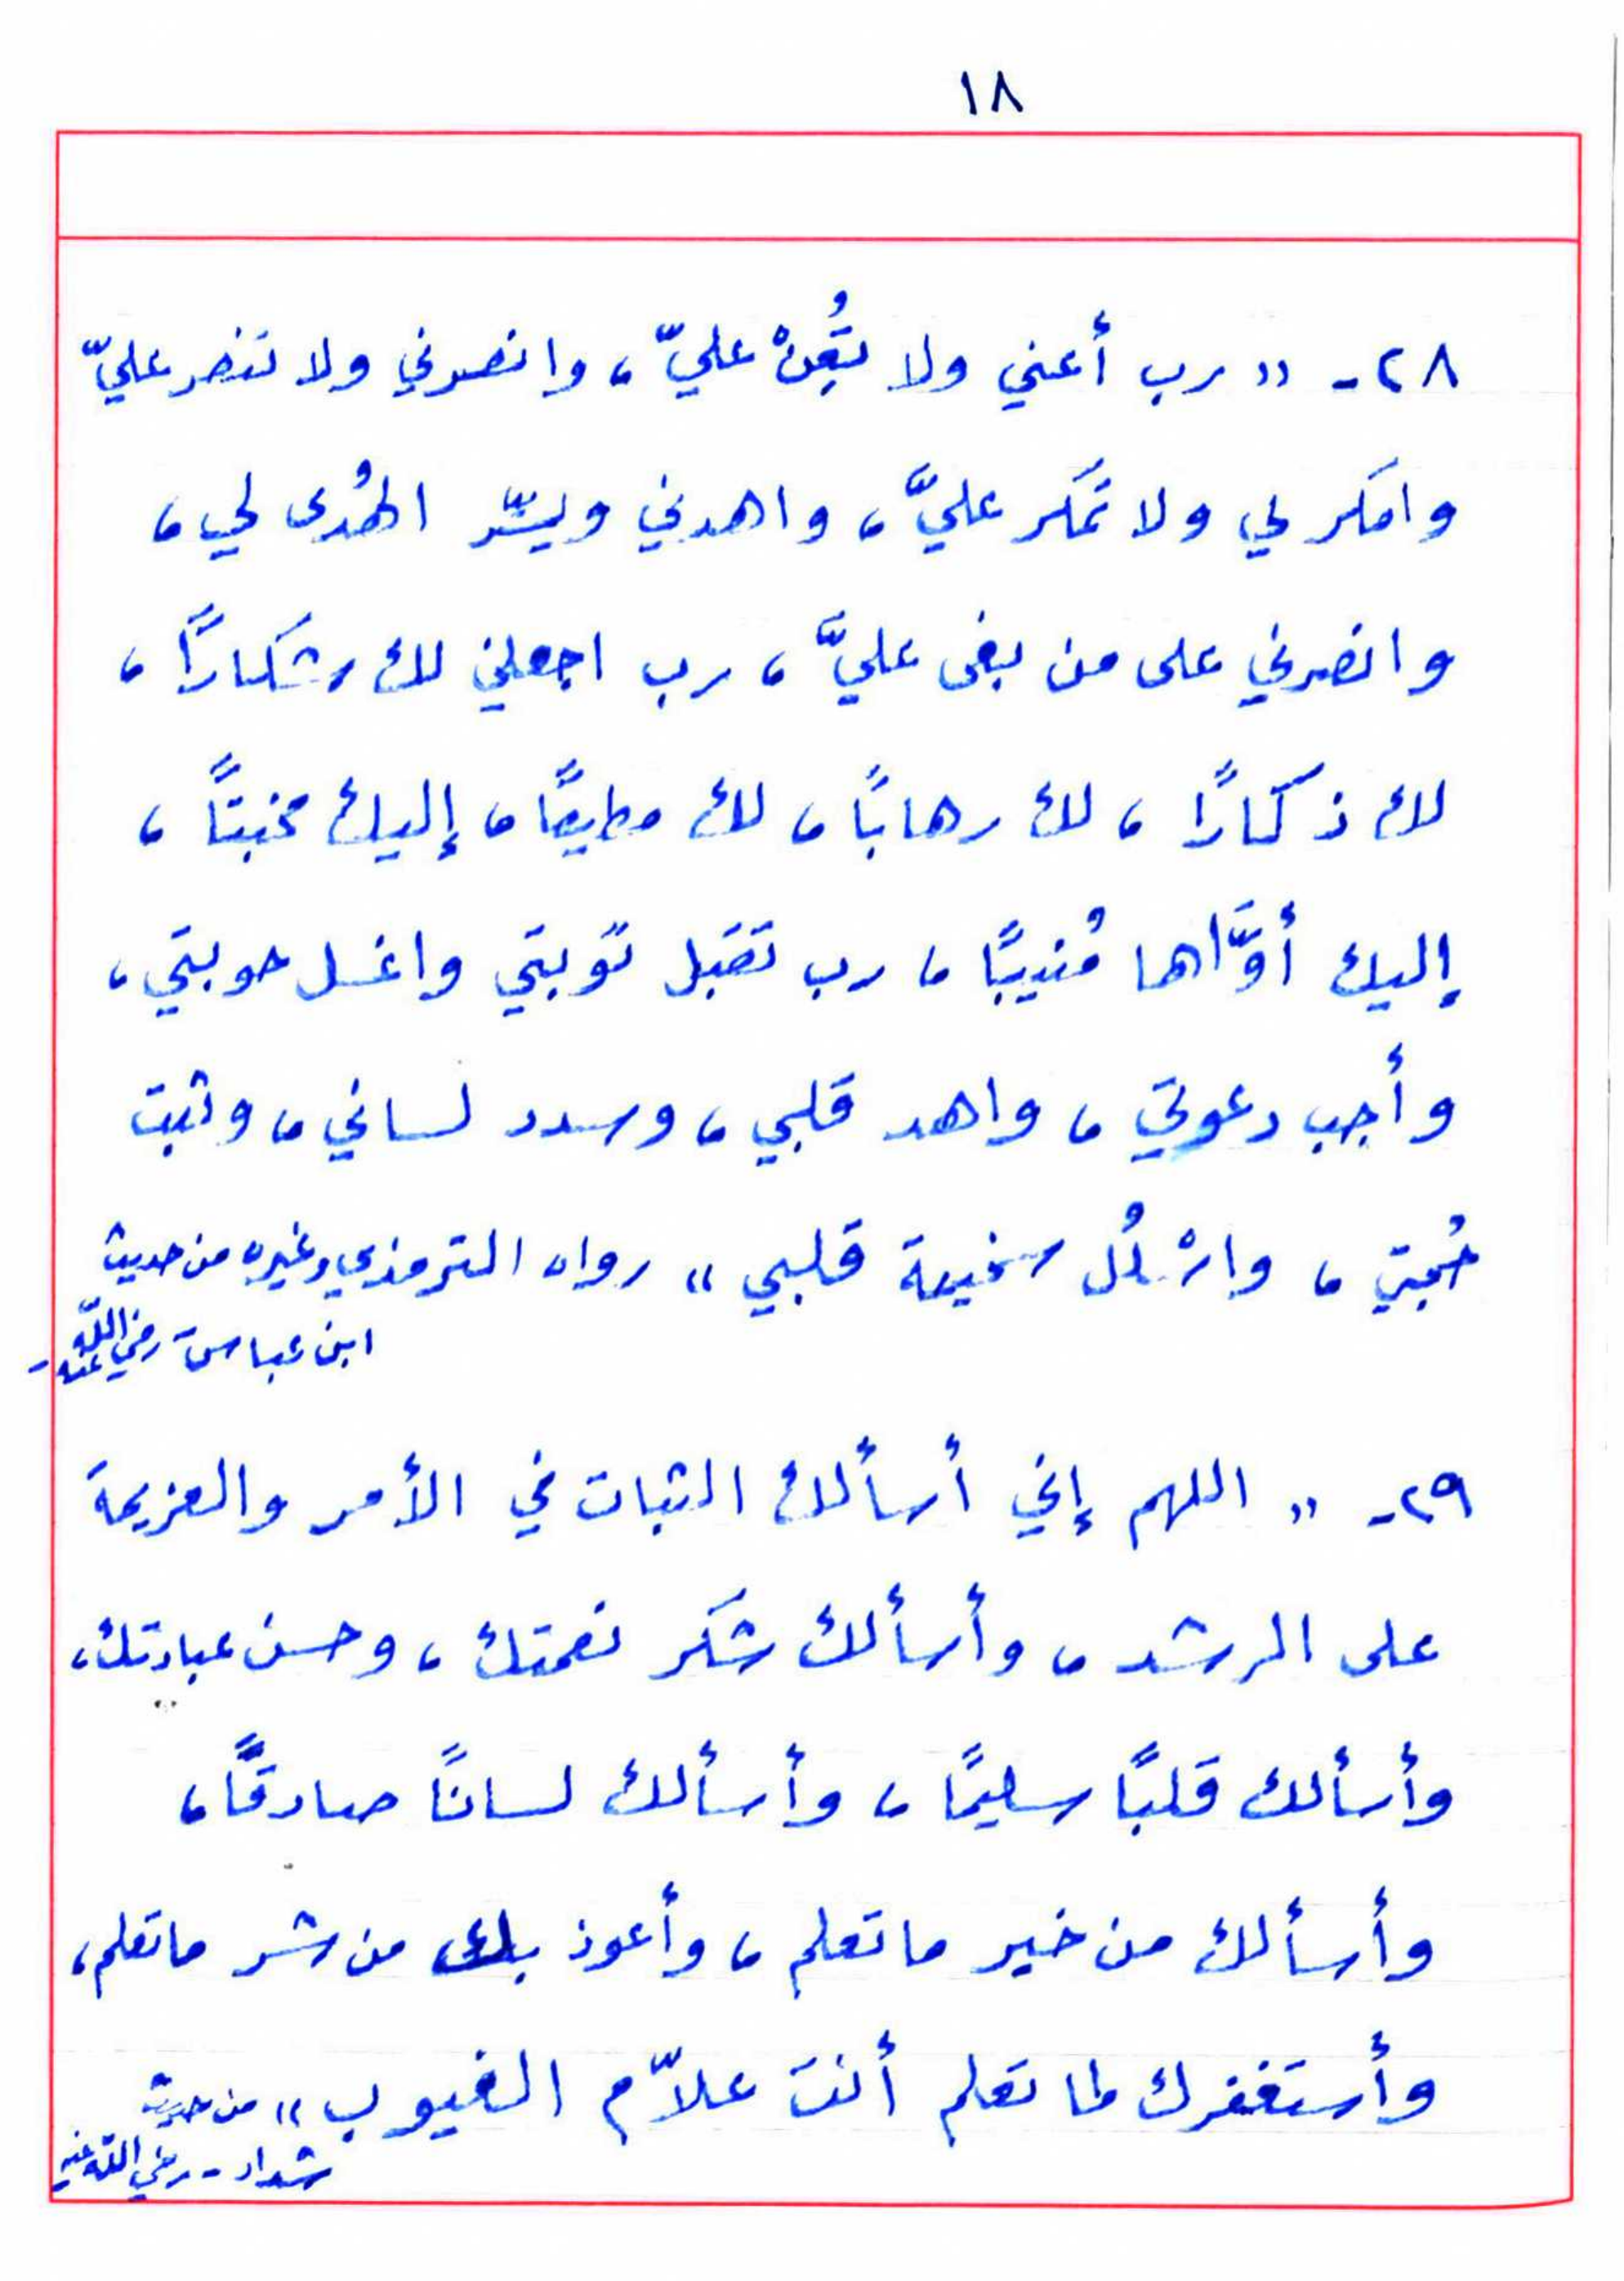 ١٨
٢٨- «رب أعني ولا تُعِنْ عليّ، وانصرني ولا تنصر عليّ
وامكر لي ولا تمكر عليَّ، واهدني ويسّر الهُدى لي،
وانصرني على من بغى عليَّ، رب اجعلني لك شكارًا،
لك ذكارًا، لك رهابًا، لك مطيعًا، إليك مخبتًا،
إليك أوَّاها مُنيبًا، رب تقبل توبتي واغسل حوبتي،
وأجب دعوتي، واهد قلبي، وسدد لساني، وثبت
حُجتي، واسْلُل سخيمة قلبي» رواه الترمذي وغيره من حديث
ابن عباس - رضي الله عنه -
٢٩- «اللهم إني أسألك الثبات في الأمر والعزيمة
على الرشد، وأسألك شكر نعمتك، وحسن عبادتك،
وأسألك قلبًا سليمًا، وأسألك لسانًا صادقًا،
وأسألك من خير ما تعلم، وأعوذ بك من شر ما تعلم،
وأستغفرك لما تعلم أنت علاّم الغيوب» من حديث
شداد - رضي الله عنه